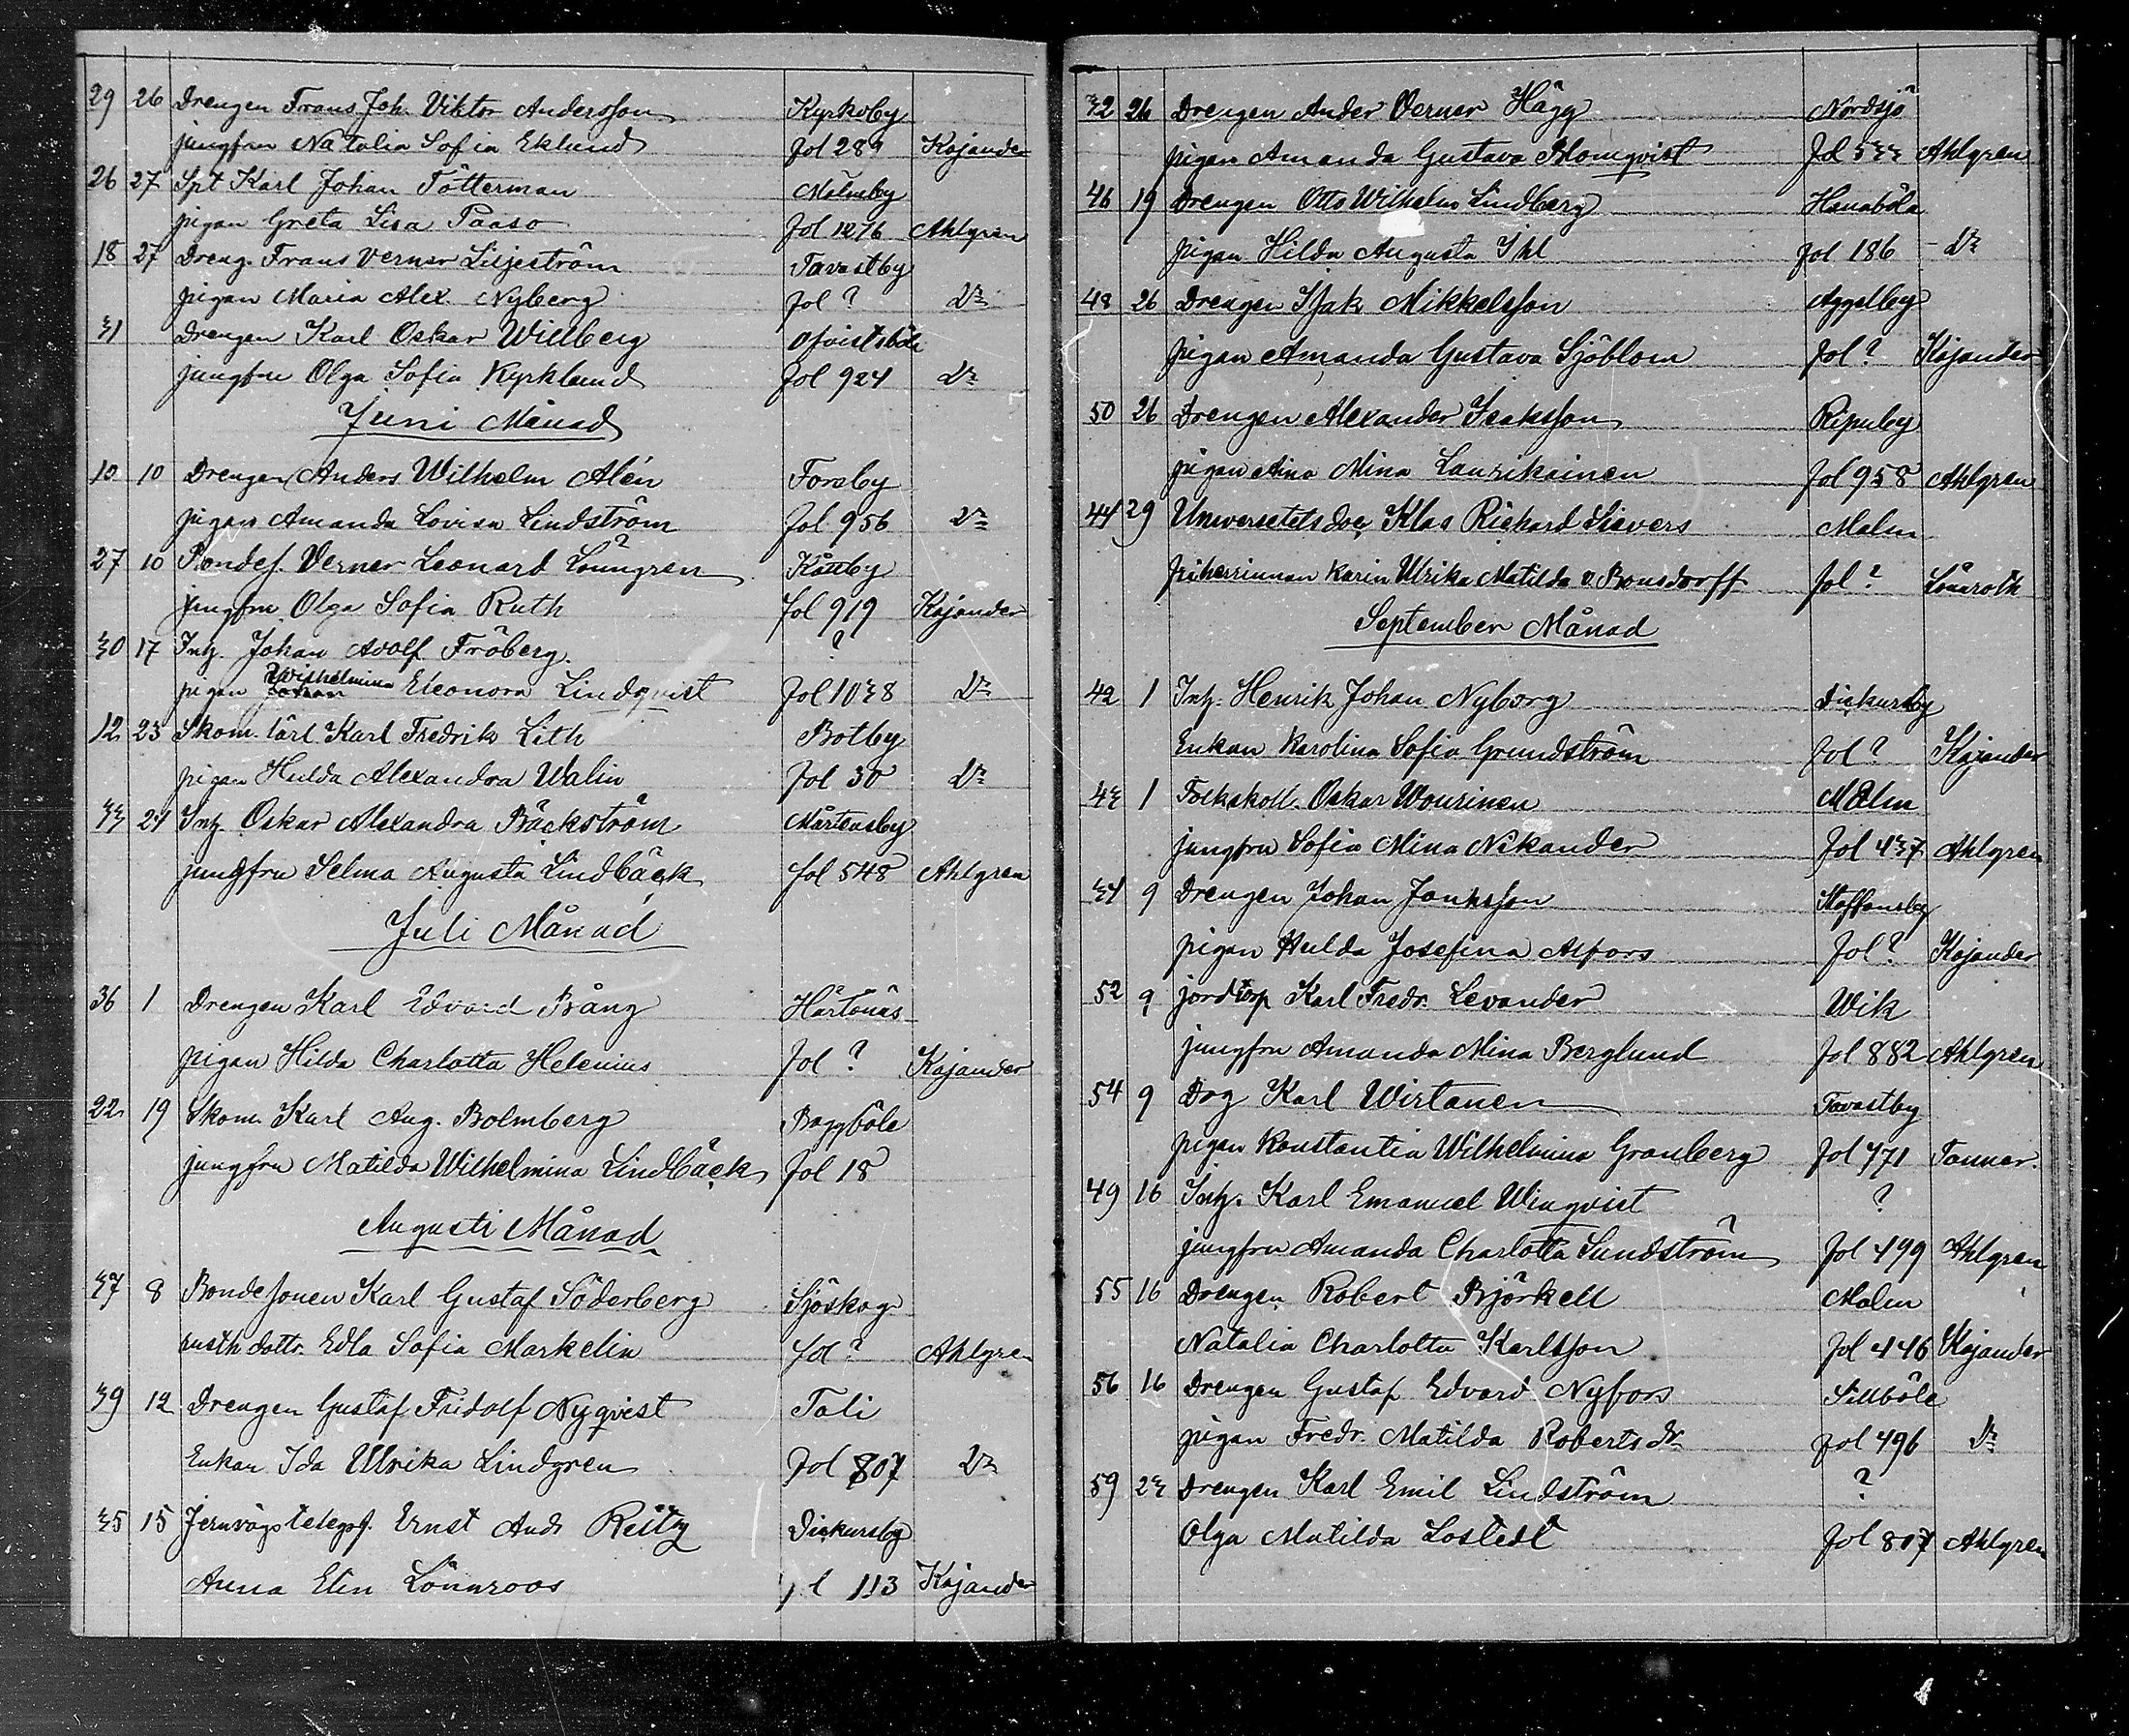 29 26 Drengen Frans Joh. Viktor Andersson Kyrkoby
jungfrun Natalia Sofia Eklund fol 289 Kajander
26 27 Spt Karl Johan Tötterman Malmby
pigan Greta Lisa Paaso fol 1276 Ahlgren
18 27 Dreng. Frans Verner Liljeström Tavastby
pigan Maria Alex. Nyberg fol ? Do
31 Drengen Karl Oskar Willberg
jungfru Olga Sofia Kyrklund fol 924 Do
Juni Månad
10 10 Drengen Anders Wilhelm Alén Forsby
pigan Amanda Lovisa Lindström fol 956 Do
27 10 Bondes. Verner Leonard Lönngren Kånby
jungfru Olga Sofia Ruth fol 919 Kajander
30 17 Inh. Johan Adolf Fröberg. ?
pigan Wilhelmina Eleonora Lindqvist fol 1038 Do
12 23 Skom. lärl Karl Fredrik Lith Botby
pigan Hulda Alexandra Walin fol 30 Do
33 24 Inh Oskar Alexandra Bäckström Mårtensby
jungfru Selma Augusta Lindbäck fol 548 Ahlgren
Juli Månad
36 1 Drengen Karl Edvard Bång Härtonäs
pigan Hilda Charlotta Helenius fol ? Kajander
22 19 Skom. Karl Aug. Bolmberg Baggböle
jungfru Matilda Wilhelmina Lindbäck fol 18
Augusti Månad
37 8 Bondesonen Karl Gustaf Söderberg Sjöskog
rusth dottr. Edla Sofia Markelin fol ? Ahlgren
39 12 Drengen Gustaf Fridolf Nyqvist Tali
Enkan Ida Ulrika Lindgren fol 807 Do
35 15 Jernvägs telegrf. Ernst And. Reitz Dickursby
Anna Elin Lönnroos fol 113 Kajander
32 26 Drengen Ander Verner Hägg Nordsjö
pigan Amanda Gustava Blomqvist fol 533 Ahlgren
46 19 Drengen Otto Wilhelm Lindberg Hanaböle
pigan Hilda Augusta Ihl fol 186 Do
48 26 Drengen Isak Mikkelsson Aggelby
pigan Amanda Gustava Sjöblom fol ? Kajander
50 26 Drengen Alexander Isaksson Ripuby
pigan Aina Mina Laurikainen fol 958 Ahlgren
44 29 Universitets doc. Klas Rickard Sievers Malm
friherrinnan Karin Ulrika Matilda v. Bonsdorff fol ? Lönnroth
September Månad
42 1 Inh. Henrik Johan Nyborg Dickursby
Enkan Karolina Sofia Grundström fol ? Kajander
43 1 Folkskoll. Oskar Wourinen Malm
jungfru Sofia Mina Nikander fol 437 Ahlgren
34 9 Drengen Johan Jonhsson Staffansby
pigan Hulda Josefina Alfors fol ? Kajander
52 9 jordtorp Karl Fredr. Levander Wik
jungfru Amanda Mina Berglund fol 882 Ahlgren
54 9 Drg Karl Wirtanen Tavastby
pigan Konstantia Wilhelmina Granberg fol 771 Tanner.
49 16 Inh. Karl Emanuel Winqvist ?
jungfru Amanda Charlotta Sundström fol 499 Ahlgren
55 16 Drengen Robert Björkell Malm
Natalia Charlotta Karlsson fol 446 Kajander
56 16 Drengen Gustaf Edvard Nyfors Sillböle
pigan Fredr. Matilda Roberts dr fol 496 Do
59 23 Drengen Karl Emil Lindström ?
Olga Matilda Lostedt fol 807 Ahlgren